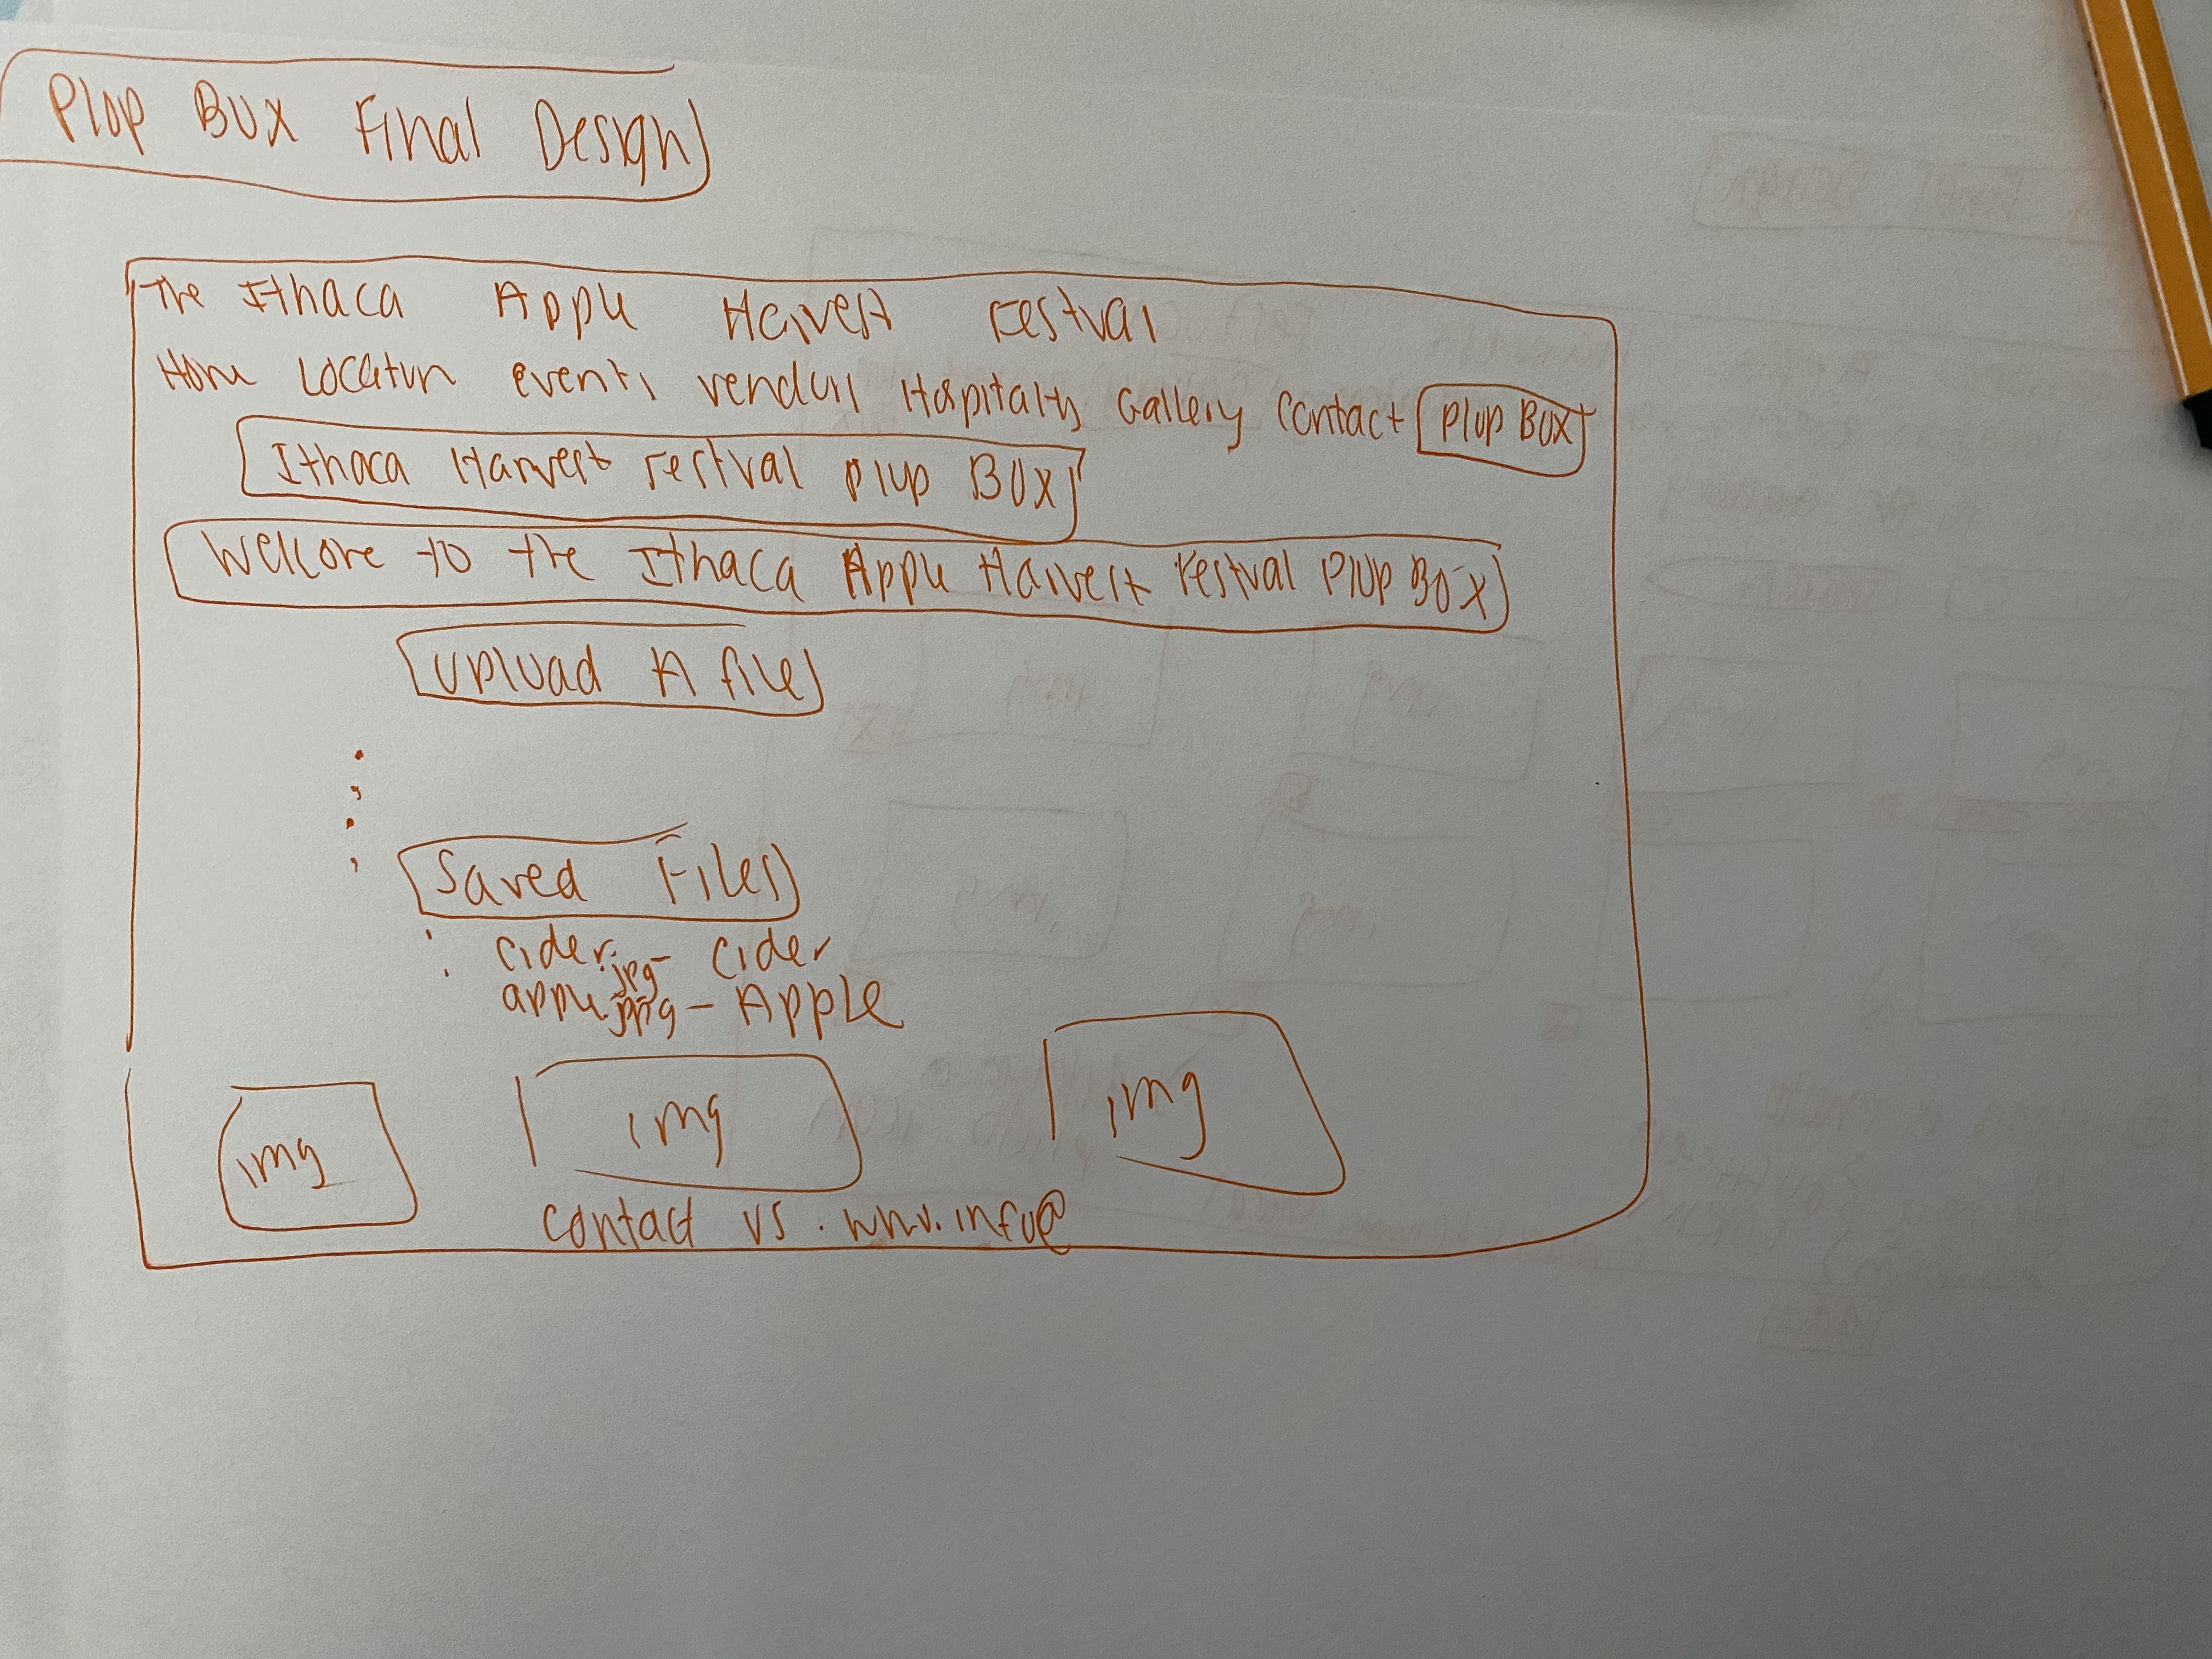 Plop Box Final Design
The Ithaca Apple Harvest Festval
Home Location events vendors Hospitalty Gallery Contact Plop Box
Ithaca Harvest Festval Plop Box
Welcome to the Ithaca Apple Harvest Festval Plop Box
Upload A file
Saved Files
: cider.jpg - Cider
apple.png - Apple
img
img
img
contact us : www.info@